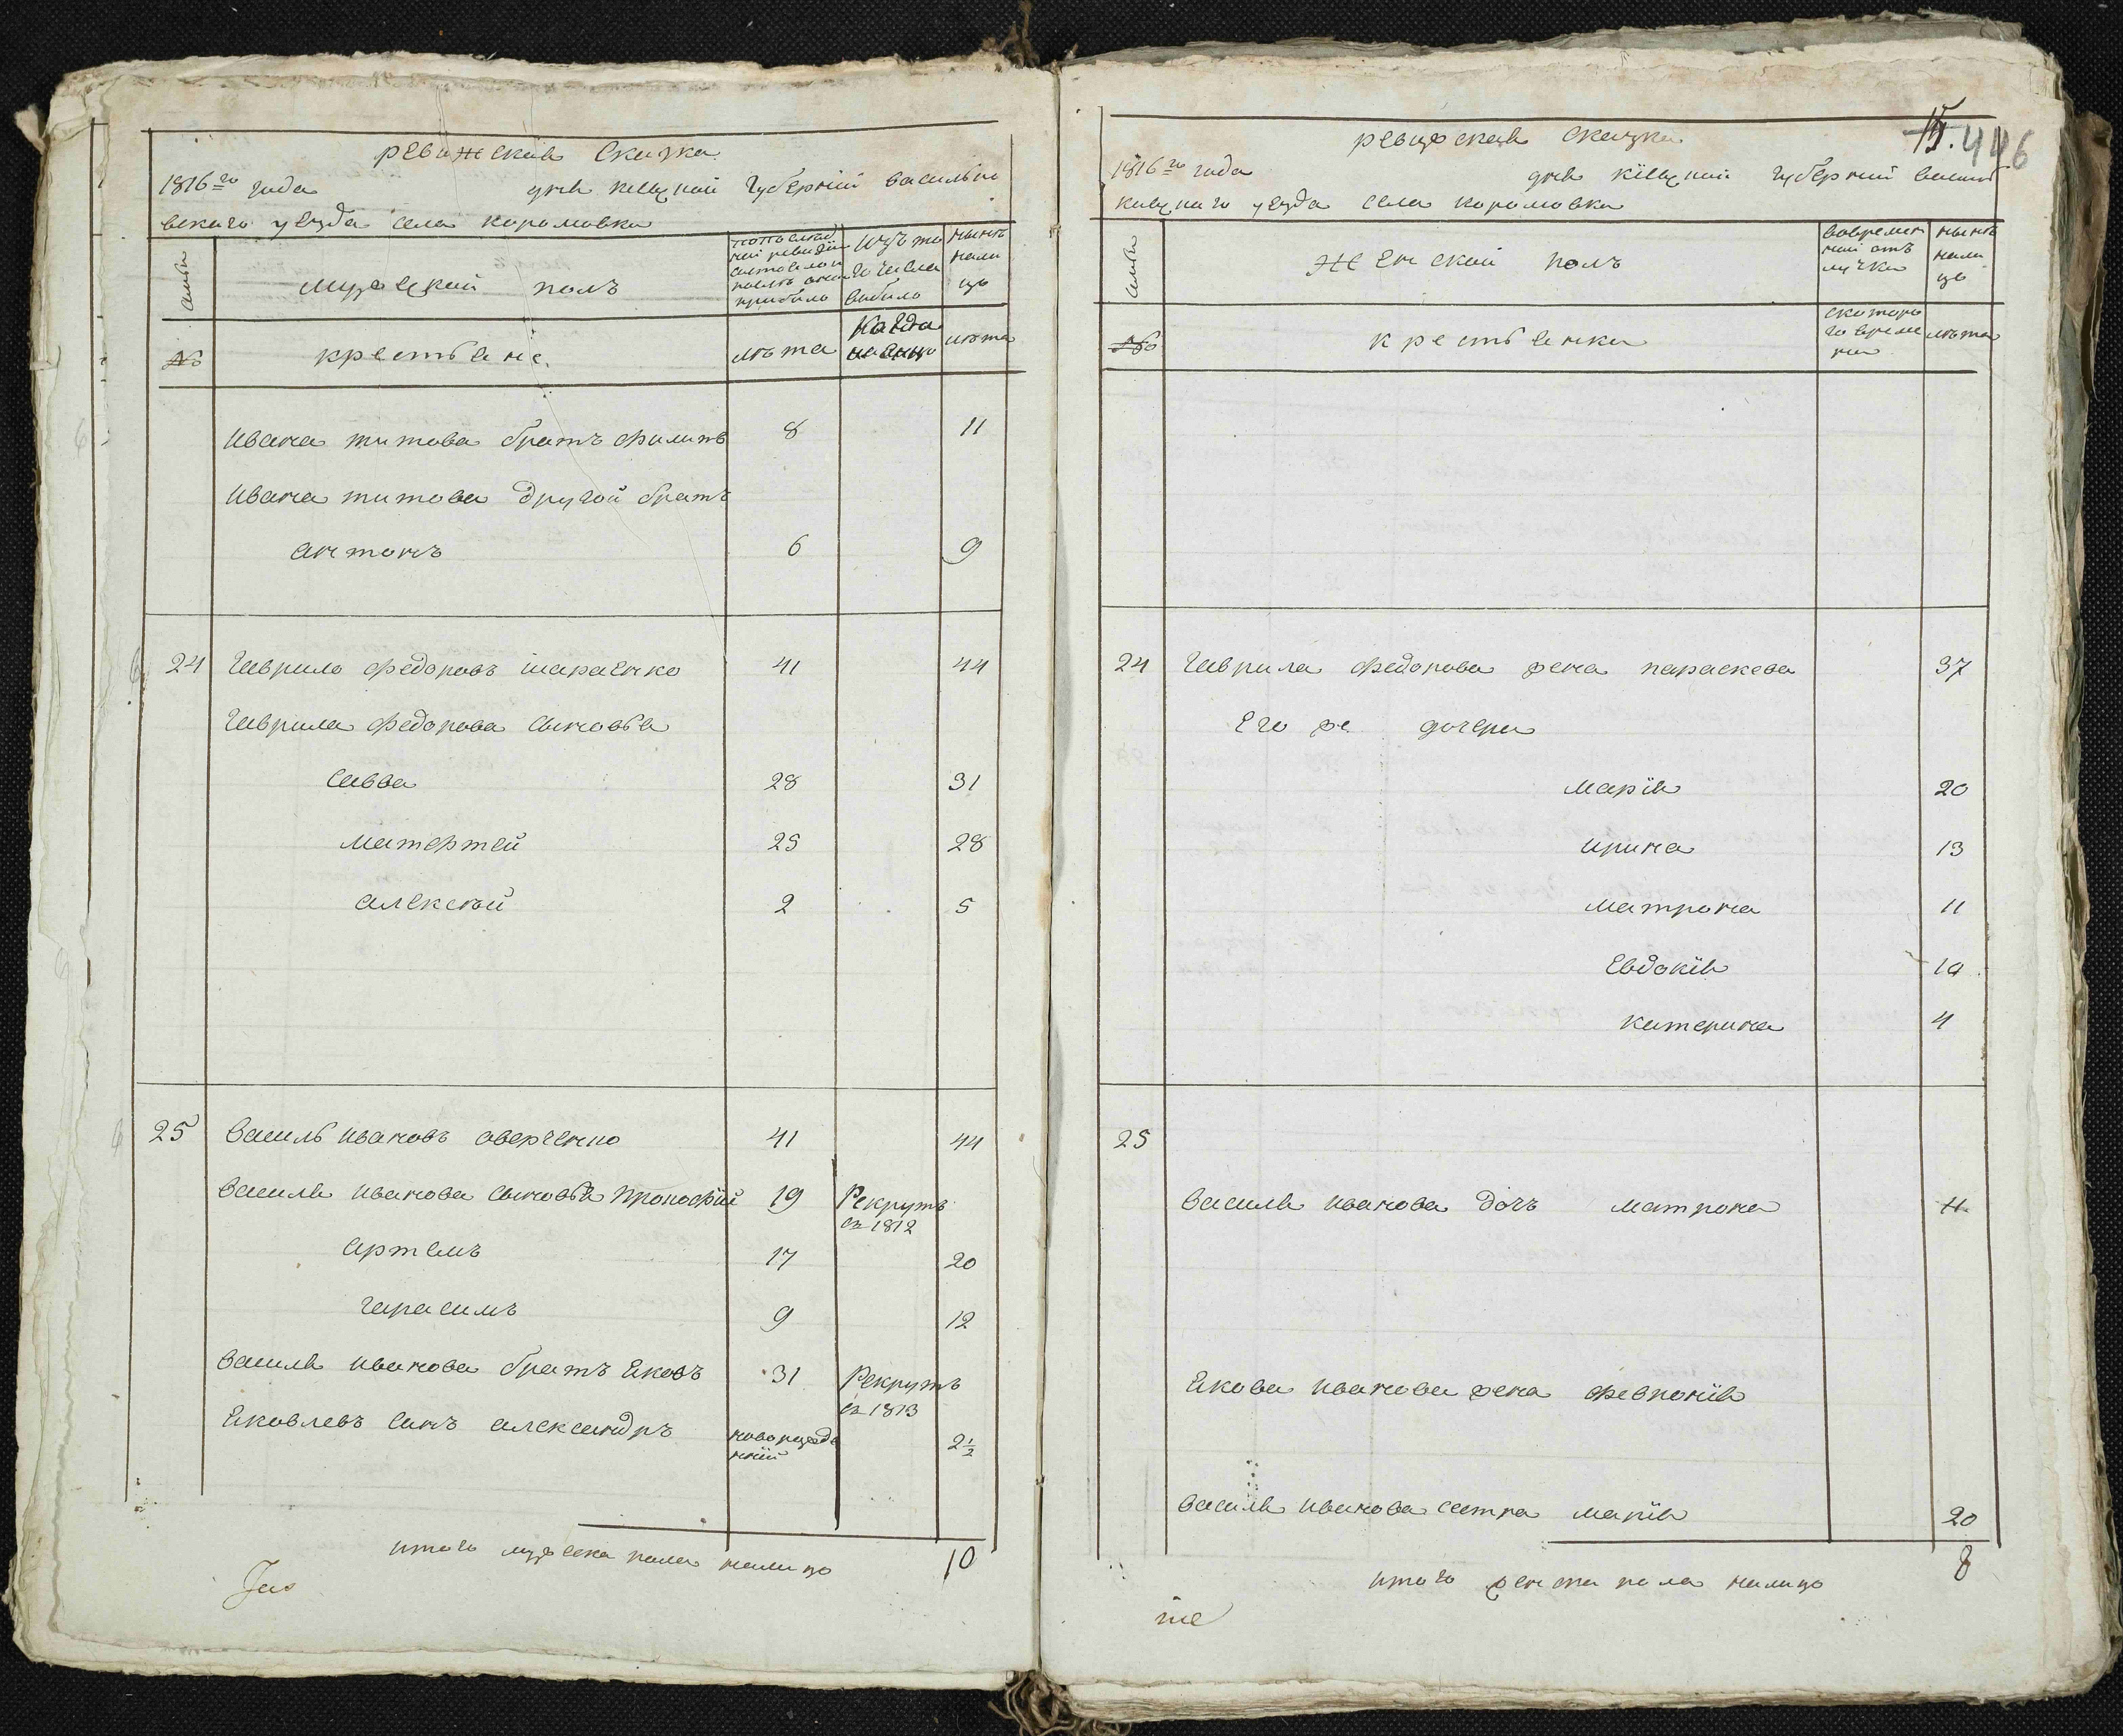 ревижская сказка
1816го года дня Кіевской губерніи Василь
вскаго уезда села королювки
семьи
мужеский полъ
попоследней ревизіи состояло и после оной прибыло
изъ того числа выбыло
ныне налицо
№
крестьяне
лета
когда именно
лета
Ивана титова братъ филипъ 8 11
Ивана титова другой братъ
антонъ 6 9
24 Гаврило федоровъ шараенко 41 44
Гаврила федорова сыновья
савва 28 31
матефтей 25 28
алексей 2 5
25 Василь Ивановъ аверченко 41 44
Василя Иванова сыновья прокофій 19 Рекрутъ
съ 1812
артемъ 17 20
гарасимъ 9 12
Василя Иванова братъ яковъ 31 Рекрутъ
съ 1813
яковлевъ синъ александръ новорожденній 2½
итого мужеска пола налицо 10
15. 446
ревижская сказка
1816го года дня Кіевской губерніи васил
ковскаго уезда села королювки
семьи
женский полъ
вовременной отлучке
ныне налицо
№
крестьянки
скоторого времени
лета
24 Гаврила федорова жена параскева 37
Его же дочери
марія 20
ирина 13
матрона 11
Евдокія 10
катерина 4
25
Василя Иванова дочъ матрона 4.
якова Иванова жена февронія
Василя Иванова сестра марія 20
итого женска пола налицо 8